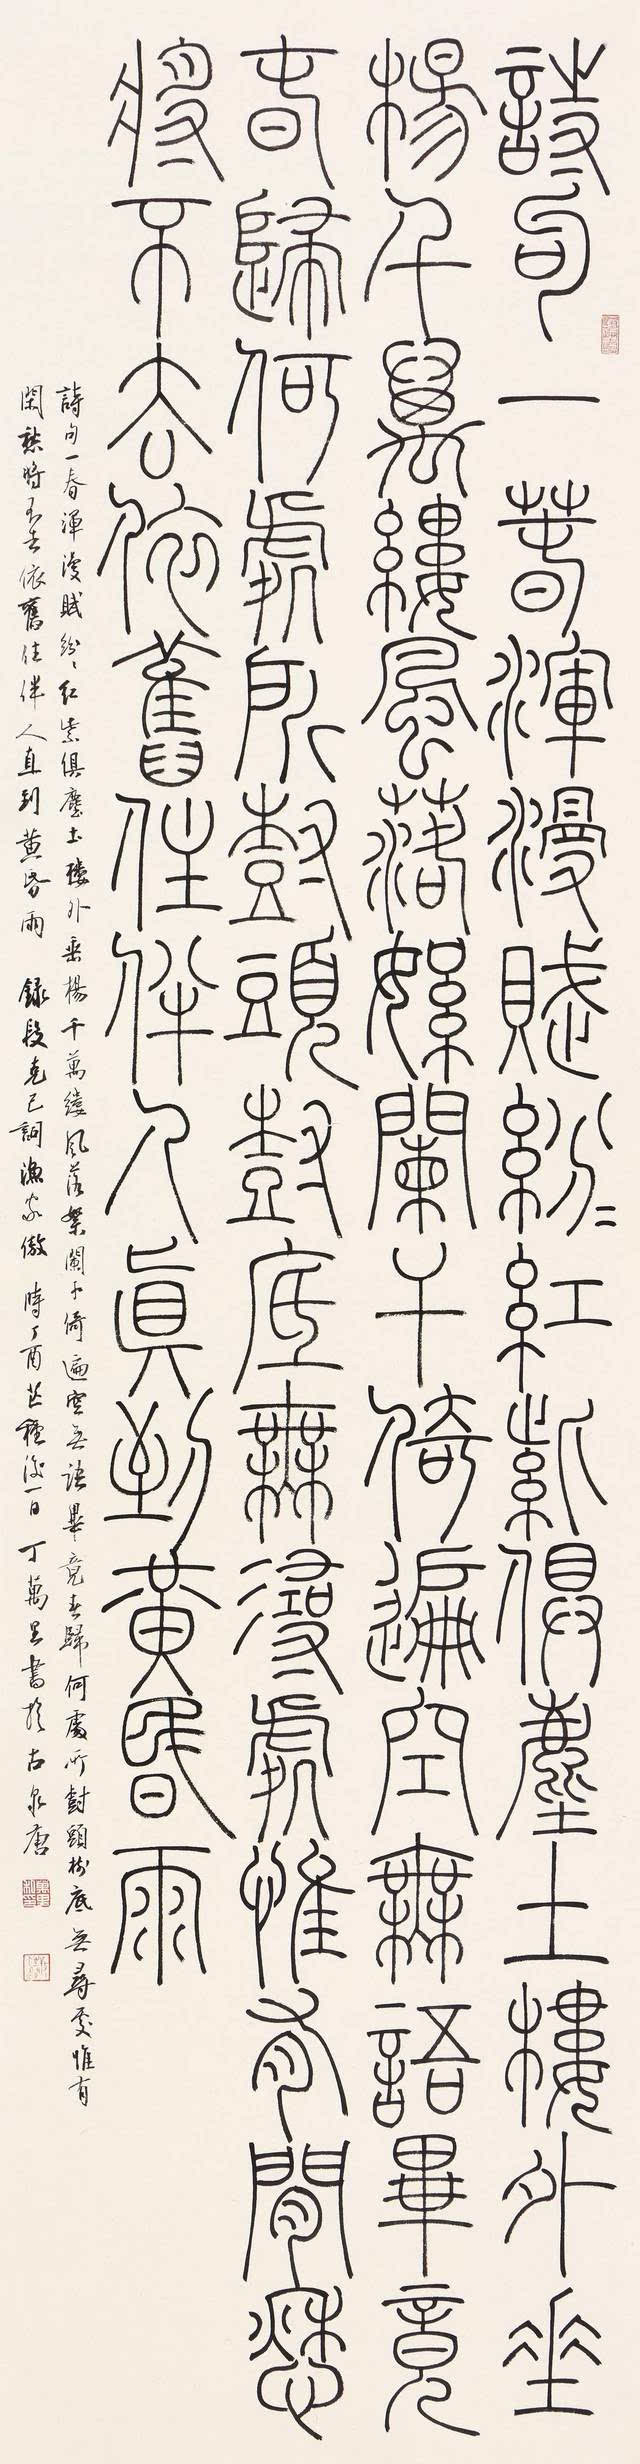 詩句一春渾漫賦紛〻紅紫俱塵土樓外垂
楊千萬縷風落絮闌干倚遍空無語畢竟
春歸何處所尌頭尌底無尋處惟有閒愁
將不去依舊住伴人真到黃昏雨
詩句一春渾漫賦紛〻紅紫俱塵土樓外垂楊千萬縷風落絮闌干倚遍空無語畢竟春歸何處所尌頭樹底無尋處惟有
閑愁將不去依舊住伴人直到黃昏雨 錄段克己詞漁家傲 時丁酉芒種後一日 丁萬里書於古泉唐